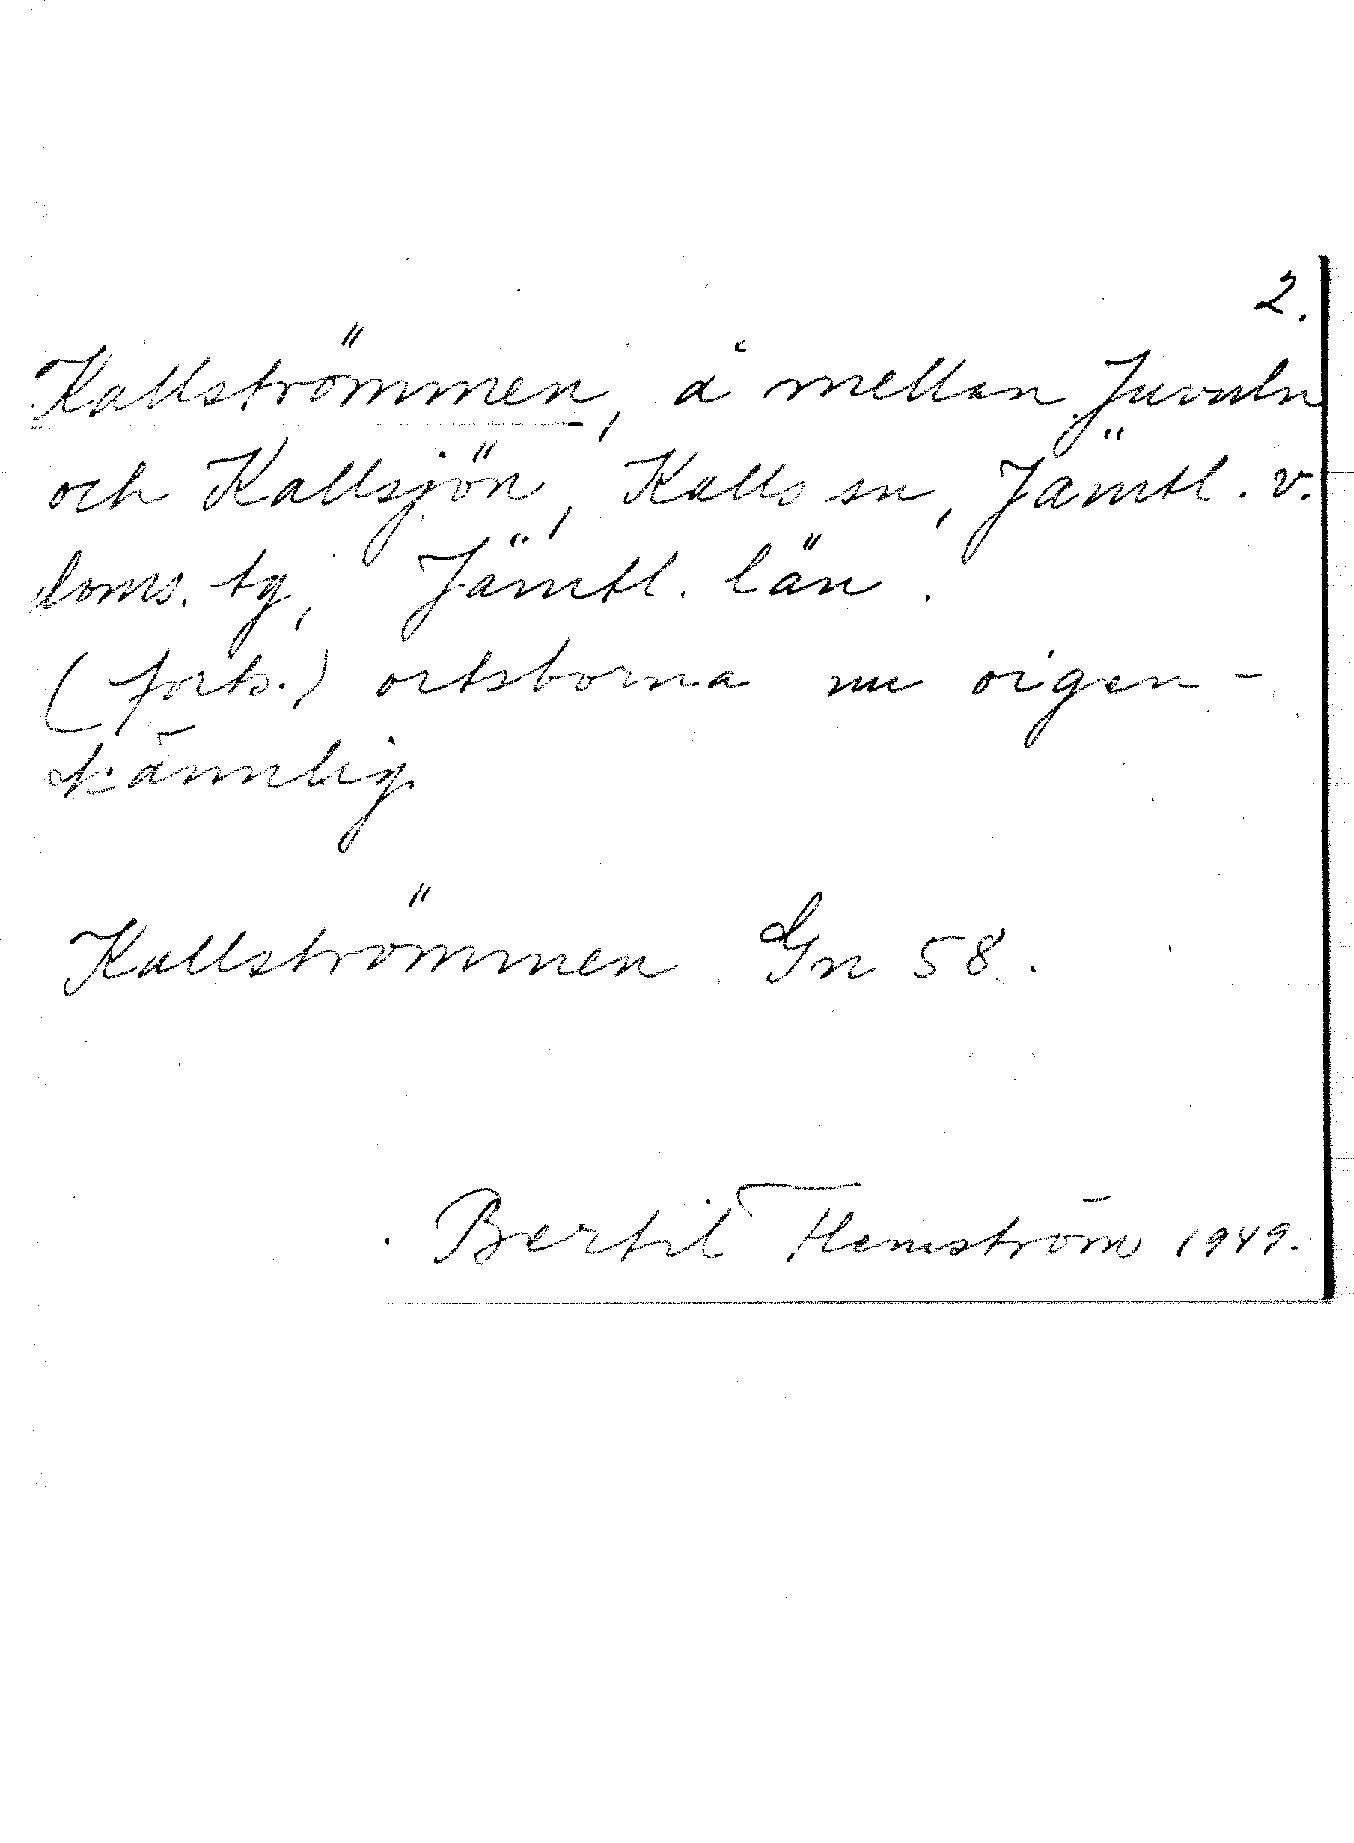 2.
Kallströmmen, å mellan Juveln
och Kallsjön, Kalls sn, Jämtl. v.
doms. tg, Jämtl. län.
(forts.) ortsborna nu oigen-
kännlig.
Kallströmmen Gn 58.
Bertil Flemström 1949.